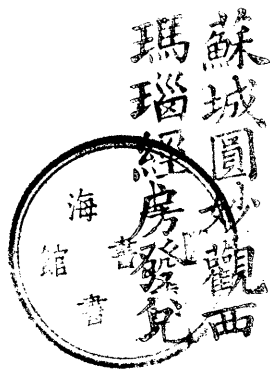 蘇城圓妙觀西
瑪瑙經房發兌
海
書
館
書